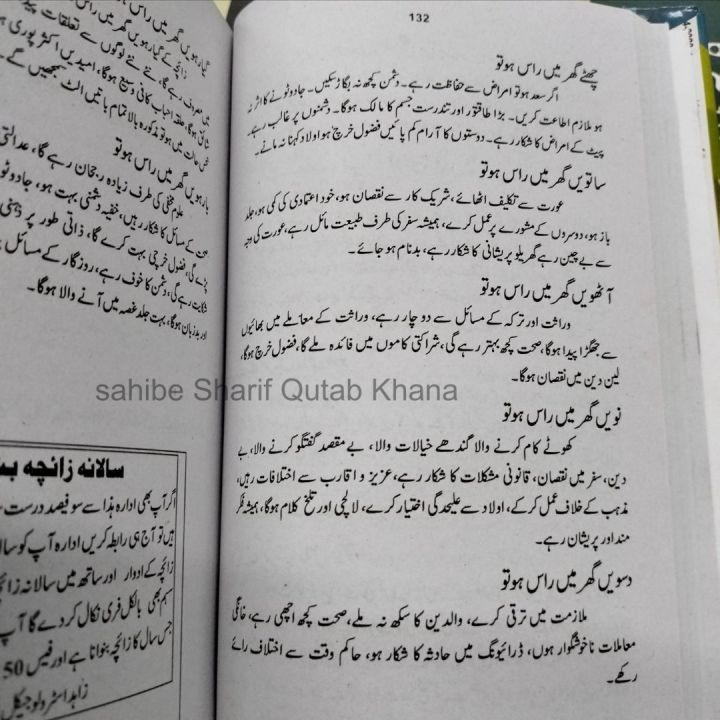 132
چھٹے گھر میں راس ہو تو
اگر سعد ہو تو امراض سے حفاظت رہے۔ دشمن کچھ نہ بگاڑ سکیں۔ جادو ٹونے کا اثر نہ
ہو ملازم اطاعت کریں۔ بڑا طاقتور اور تندرست جسم کا مالک ہوگا۔ دشمنوں پر غالب رہے۔
پیٹ کے امراض کا شکار رہے۔ دوستوں کا آرام کم پائیں فضول خرچ ہو اولاد کہنا نہ مانے۔
ساتویں گھر میں راس ہو تو
عورت سے تکلیف اٹھائے، شریک کار سے نقصان ہو، خود اعتمادی کی کمی ہو، جلد
باز ہو، دوسروں کے مشورے پر عمل کرے، ہمیشہ سفر کی طرف طبیعت مائل رہے، عورت کی وجہ
سے بے چین رہے گھریلو پریشانی کا شکار رہے، بدنام ہو جائے۔
آٹھویں گھر میں راس ہو تو
وراثت اور ترکہ کے مسائل سے دو چار رہے، وراثت کے معاملے میں بھائیوں
سے جھگڑا پیدا ہوگا، صحت کچھ بہتر رہے گی، شراکتی کاموں میں فائدہ ملے گا، فضول خرچ ہوگا،
لین دین میں نقصان ہوگا۔
sahibe Sharif Qutab Khana
نویں گھر میں راس ہو تو
کھوٹے کام کرنے والا گندھے خیالات والا، بے مقصد گفتگو کرنے والا، بے
دین، سفر میں نقصان، قانونی مشکلات کا شکار رہے، عزیز و اقارب سے اختلافات رہیں،
مذہب کے خلاف عمل کرے، اولاد سے علیحدگی اختیار کرے، لالچی اور تلخ کلام ہوگا، ہمیشہ فکر
مند اور پریشان رہے۔
دسویں گھر میں راس ہو تو
ملازمت میں ترقی کرے، والدین کا سکھ نہ ملے، صحت کچھ اچھی رہے، خانگی
معاملات ناخوشگوار ہوں، ڈرائیونگ میں حادثہ کا شکار ہو، حاکم وقت سے اختلاف رائے
رکھے۔
گیارہویں گھر میں راس
میں مصروف رہے گا، نئے نئے لوگوں سے تعلقات
حلقہ احباب کافی وسیع ہوگا، امیدیں اکثر پوری
میں ہو تو مذکورہ بالا تمام باتیں الٹ سمجھیں گے۔
بارہویں گھر میں راس ہو تو
علوم مخفی کی طرف زیادہ رجحان رہے گا، عدالتی
کے مسائل کا شکار رہیں، خفیہ دشمنی بہت ہو، جادو ٹونے
پڑے گی، فضول خرچی بہت کرے گا، ذاتی طور پر ذہنی
شکایت رہے گی، دشمن کا خوف رہے، روزگار کے مسائل
اور بدزبان ہوگا، بہت جلد غصہ میں آنے والا ہوگا۔
سالانہ زائچہ
اگر آپ بھی ادارہ ہذا سے سو فیصد درست
ہیں تو آج ہی رابطہ کریں ادارہ آپ کو
زائچہ کے ادوار اور ساتھ میں سالانہ
بھی بالکل فری نکال کر دے گا آپ
جس سال کا زائچہ بنوانا ہے اور فیس 50
زاہد اسٹرولوجیکل